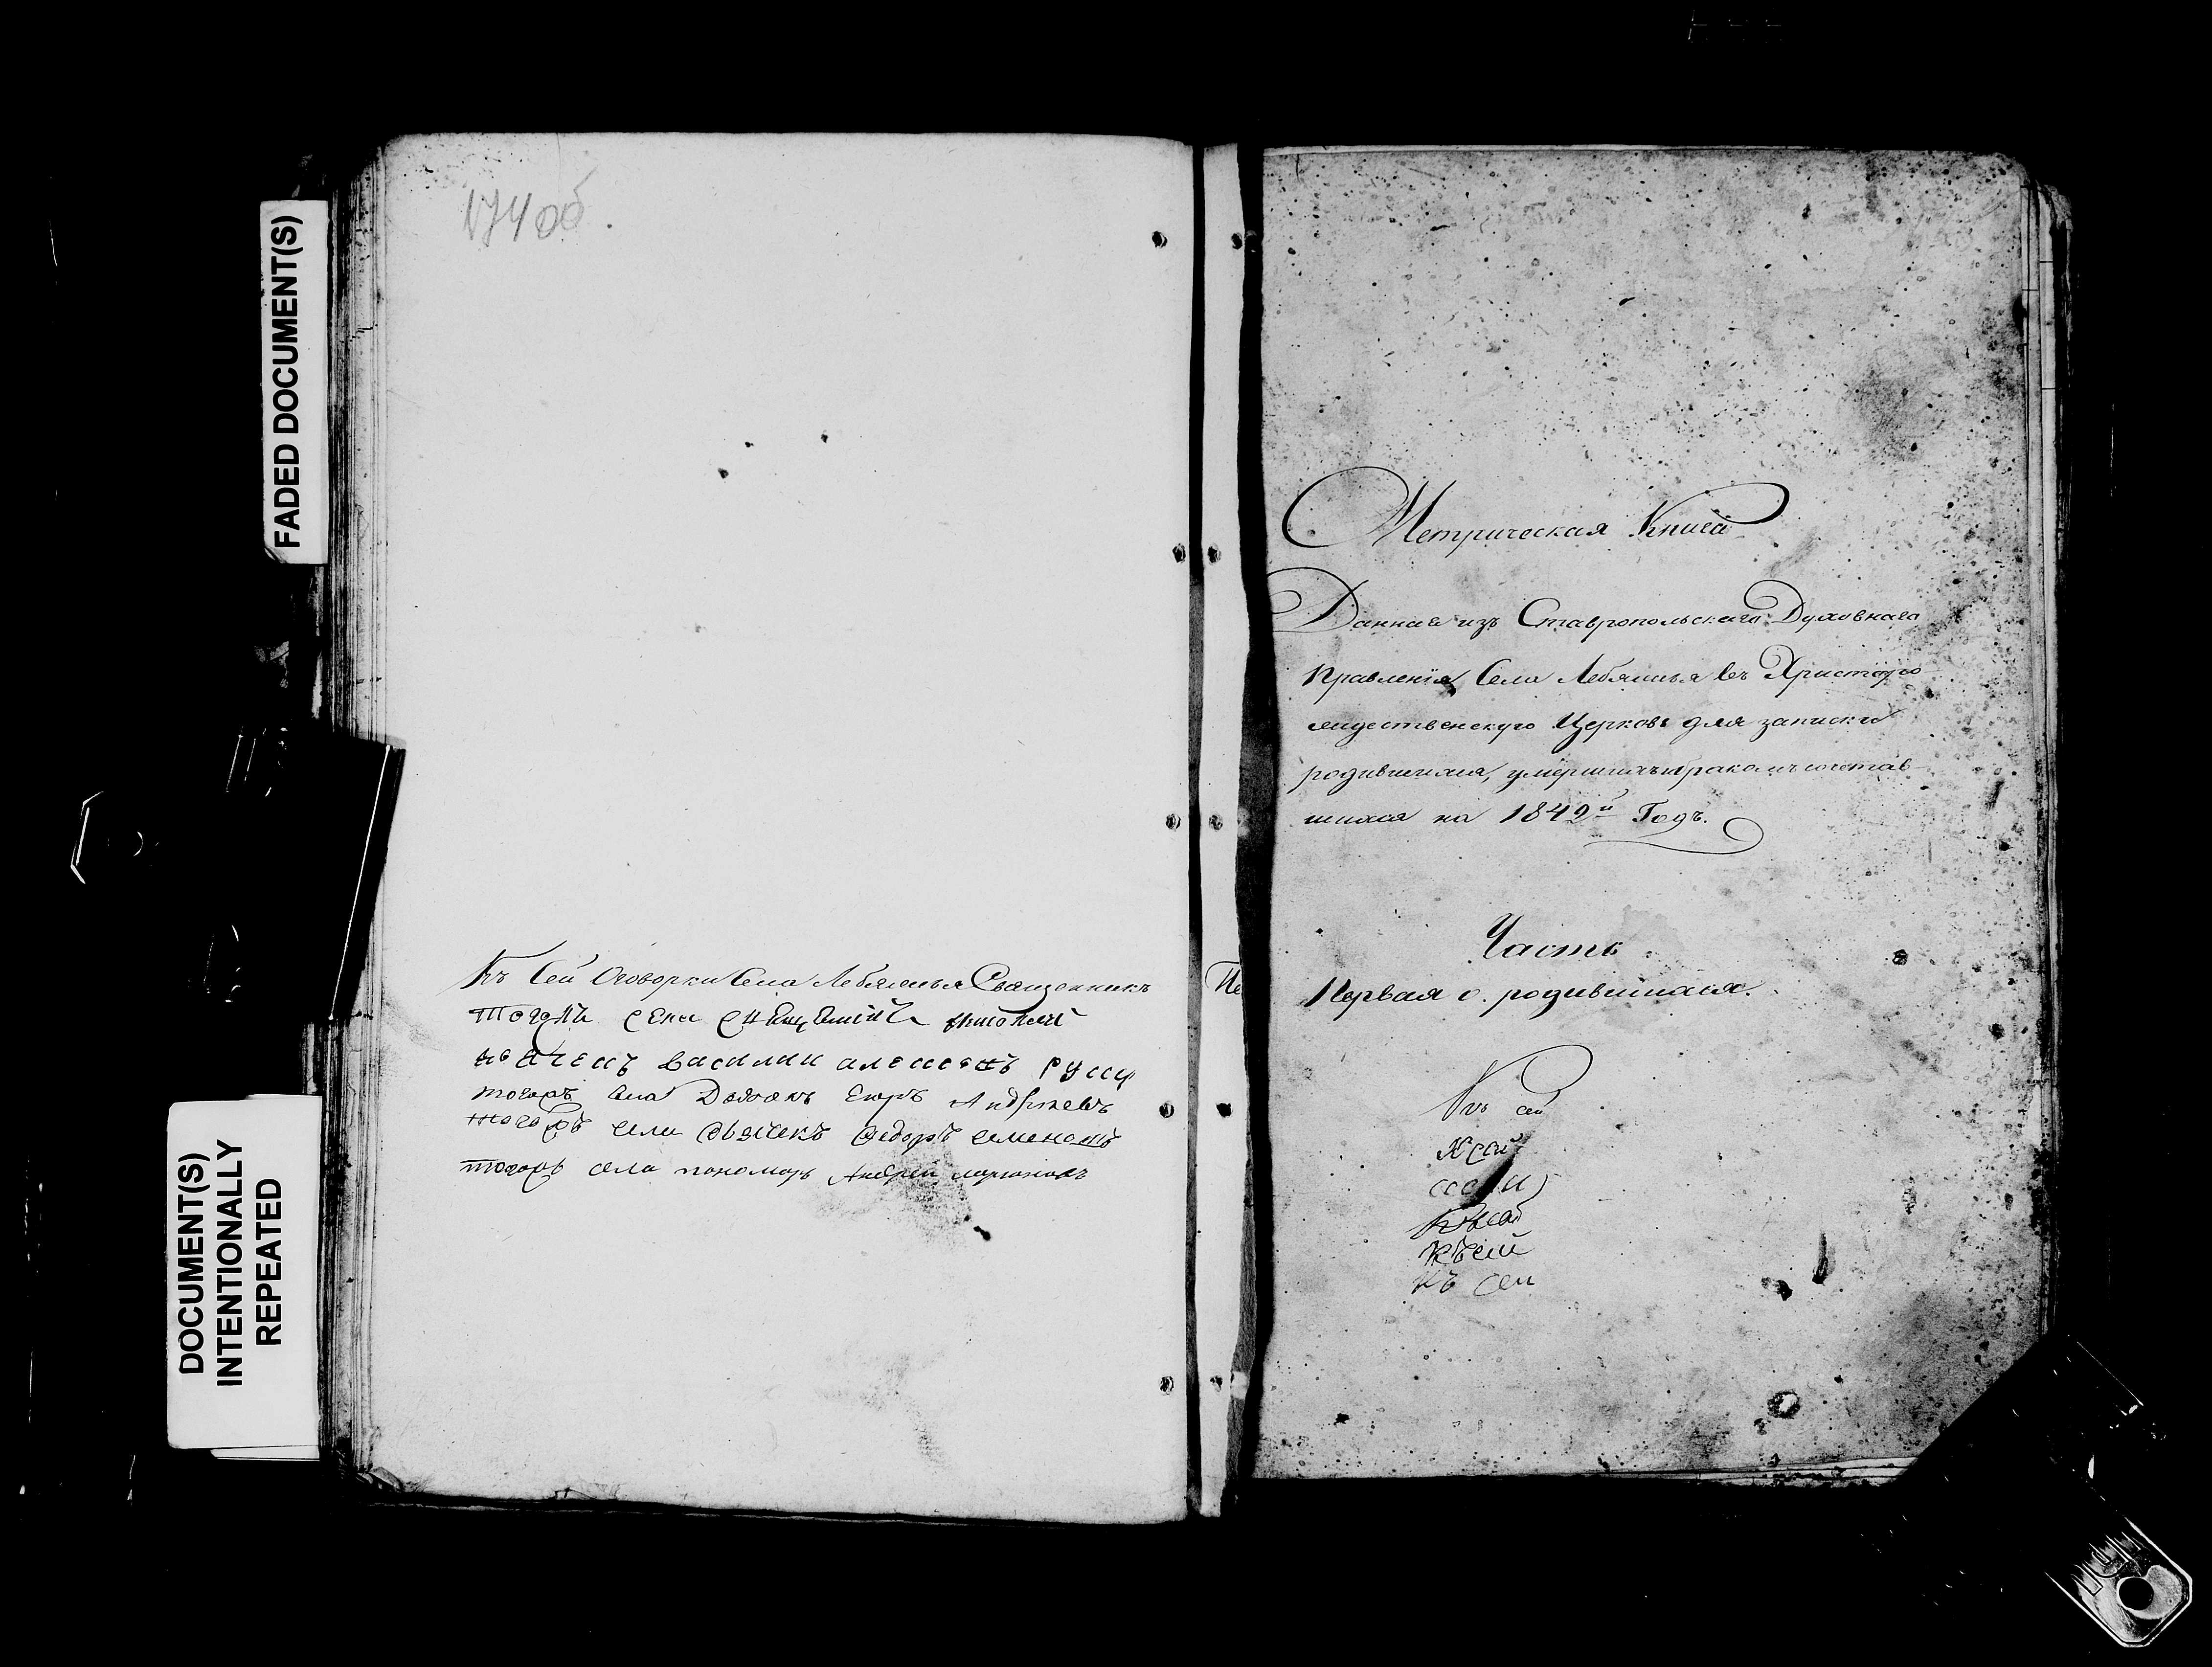 FADED DOCUMENT(S)
DOCUMENT(S)
INTENTIONALLY
REPEATED
174 об.
Къ Сей Оговорки Села Лебяжья Священникъ
тогожъ села
василии
тогожъ села Дьячекъ Егоръ Андреевъ
тогожъ села дьячекъ Федоръ семеновъ
тогожъ села пономарь Андрей ларионовъ
Метрическая Книга
Данная изъ Ставропольскаго Духовнаго
Правленія Села Лебяжья въ Христоро
ждественскую Церковь для записки
родившихся, умершихъ и бракомъ сочетав
шихся на 1842й Годъ.
Часть
Первая о родившихся.
Къ сей
къ сей
къ сей
къ сей